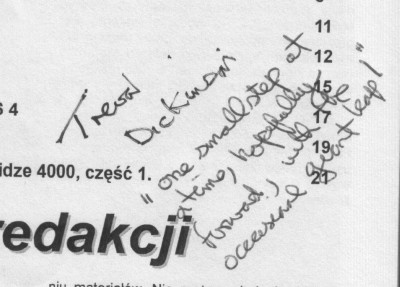 9
11
12
15
17
19
21
S 4
idze 4000, część 1.
redakcji
Trevor
Dickinson
"one small step at
a time, hopefully
forward, with the
occasional giant leap!"
niu materiałów. Nie